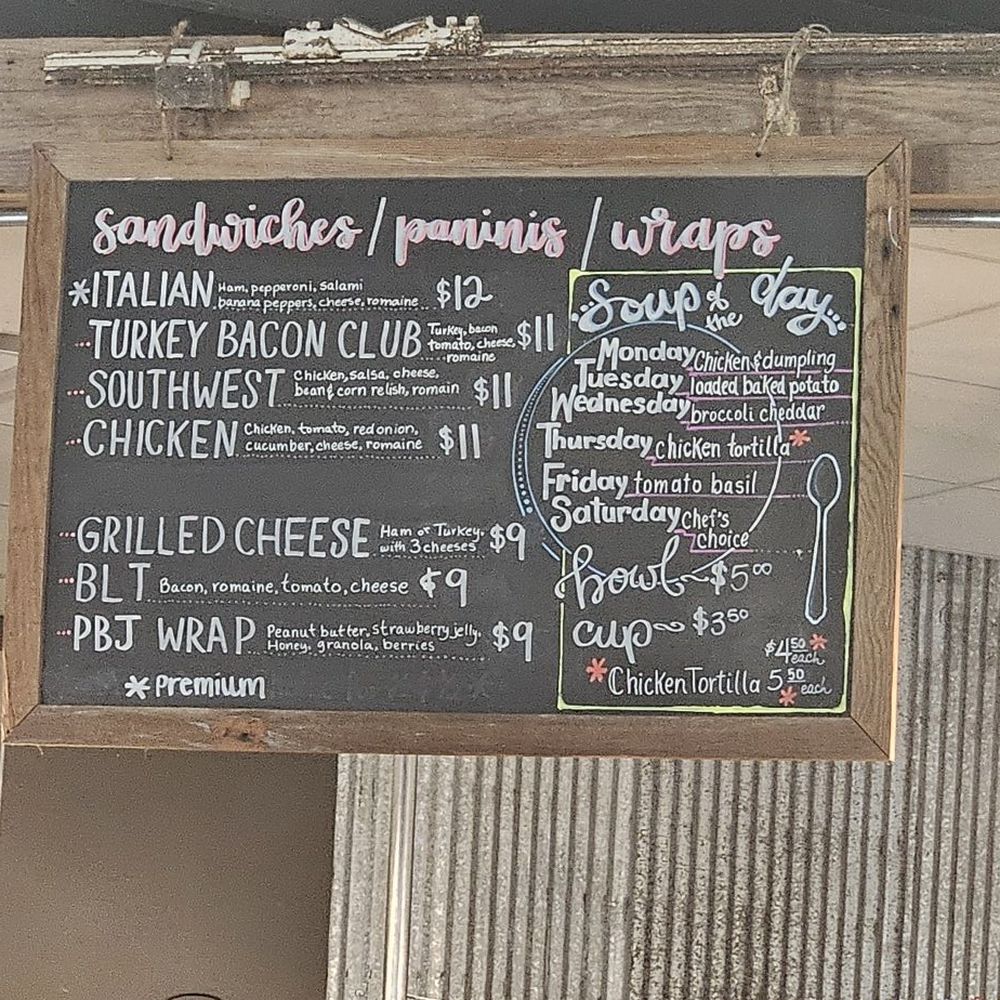 sandwiches / paninis / wraps
*ITALIAN Ham, pepperoni, salami
banana peppers, cheese, romaine $12
TURKEY BACON CLUB Turkey, bacon
tomato, cheese, $11
romaine
SOUTHWEST Chicken, salsa, cheese,
bean & corn relish, romain $11
CHICKEN Chicken, tomato, red onion,
cucumber, cheese, romaine $11
GRILLED CHEESE Ham or Turkey,
with 3 cheeses $9
BLT Bacon, romaine, tomato, cheese $9
PBJ WRAP Peanut butter, strawberry jelly,
Honey, granola, berries $9
* Premium
Soup of the day
Monday Chicken & dumpling
Tuesday loaded baked potato
Wednesday broccoli cheddar
Thursday chicken tortilla *
Friday tomato basil
Saturday chef's
choice
bowl ~ $5.00
cup ~ $3.50
$4.50 * each
* Chicken Tortilla 5.50 * each